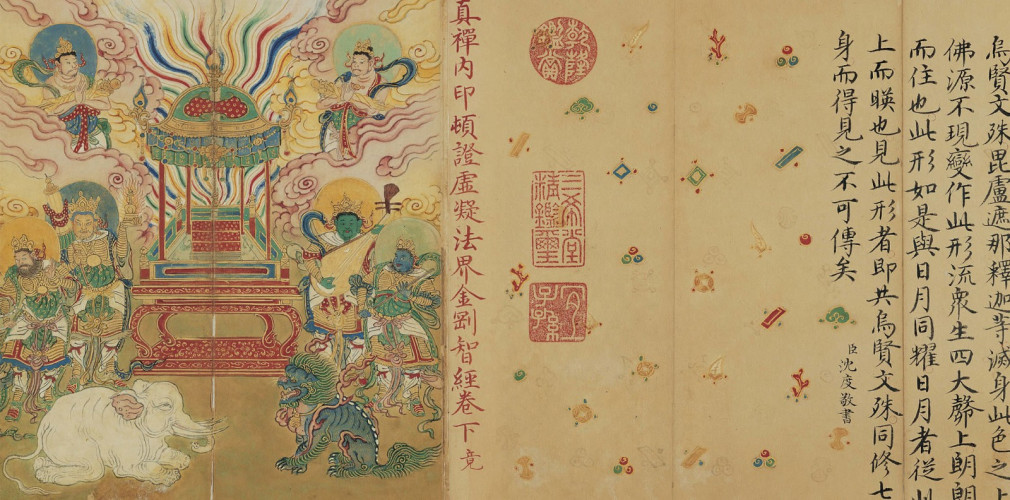 烏賢文殊毘盧遮那釋迦等滅身此色之上
佛源不現變作此形流衆生四大臍上朗朗
而住也此形如是與日月同耀日月者從
上而暎也見此形者即共烏賢文殊同修七
身而得見之不可傳矣
臣沈度敬書
乾隆鑑賞
三希堂精鑑璽
宜子孫
真禪内印頓證虛凝法界金剛智經卷下竟